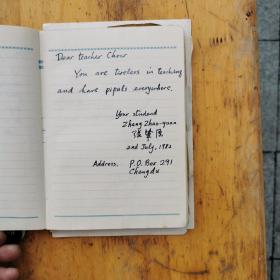 Dear teacher Chow
You are tireless in teaching
and have pipals everywhere.
Your student
Zhang Zhao-yuan
2nd July, 1982
Address. P.O. Box 291
Chengdu